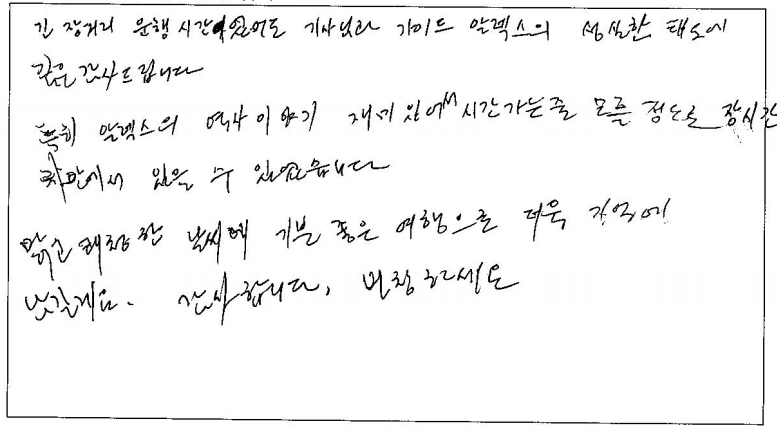 긴 장거리 운행시간이었어도 기사님과 가이드 알렉스의 성실한 태도에
깊은 감사드립니다
특히 알렉스의 역사이야기 재미있어서 시간가는줄 모를 정도로 장시간
차안에서 있을 수 있었습니다
맑고 쾌청한 날씨에 기분 좋은 여행으로 더욱 기억에
남길게요. 감사합니다. 번창하세요